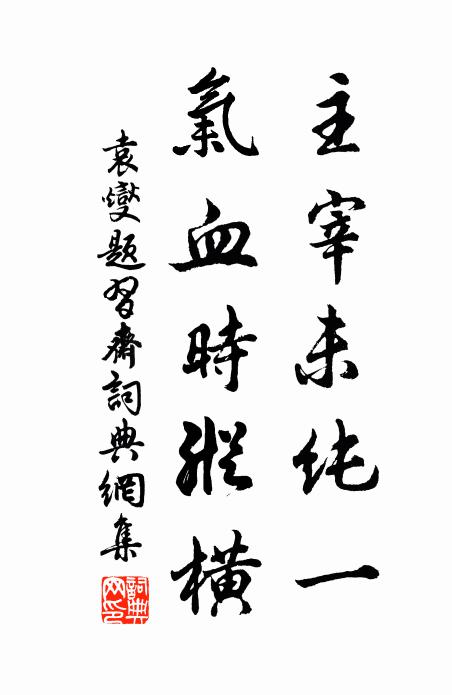 主宰未纯一
氣血時縱橫
袁燮題習齋詞典網集
詞典